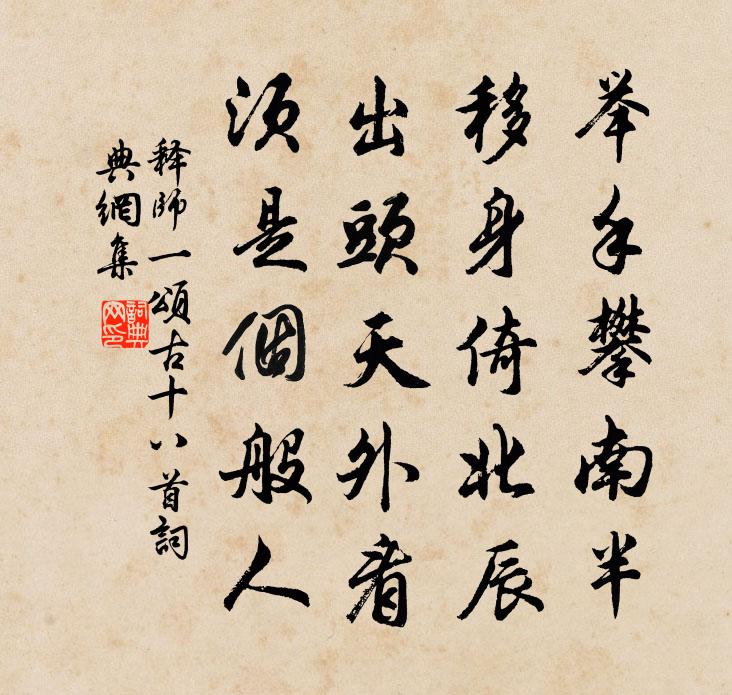 举手攀南半
移身倚北辰
出頭天外看
须是個般人
释师一頌古十八首詞
典網集
詞典
网印